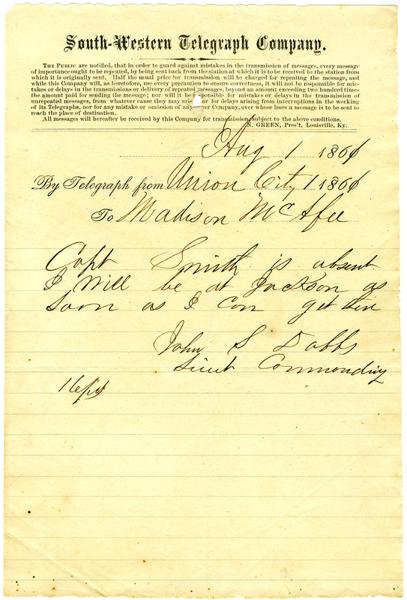 South-Western Telegraph Company.
THE PUBLIC are notified, that in order to guard against mistakes in the transmission of messages, every message
of importance ought to be repeated, by being sent back from the station at which it is to be received to the station from
which it is originally sent. Half the usual price for transmission will be charged for repeating the message, and
while this Company will, as heretofore, use every precaution to ensure correctness, it will not be responsible for mis-
takes or delays in the transmissions or delivery of repeated messages, beyond an amount exceeding two hundred times
the amount paid for sending the message; nor will it be responsible for mistakes or delays in the transmission of
unrepeated messages, from whatever cause they may arise, or for delays arising from interruptions in the working
of its Telegraphs, nor for any mistake or omission of any other Company, over whose lines a message is to be sent to
reach the place of destination.
All messages will hereafter be received by this Company for transmission, subject to the above conditions.
N. GREEN, Pres't, Louisville, Ky.
Aug 1 1861
By Telegraph from Union City 1 1861
To Madison McAfee
Capt Smith is absent
I Will be at Jackson as
soon as I Con get
John S Dobbs
Lieut Commonding